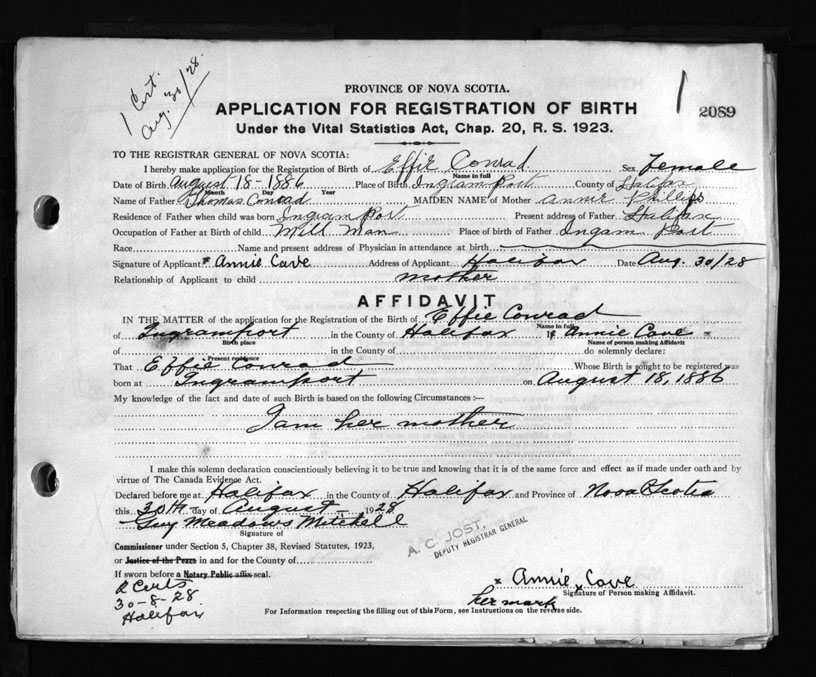 1 Cert.
Aug. 30/28.
PROVINCE OF NOVA SCOTIA.
1
APPLICATION FOR REGISTRATION OF BIRTH
2089
Under the Vital Statistics Act, Chap. 20, R. S. 1923.
TO THE REGISTRAR GENERAL OF NOVA SCOTIA:
I hereby make application for the Registration of Birth of Effie Conrad. Sex Female
Name in full
Date of Birth August 18-1886 Place of Birth Ingram Port County of Halifax
Month Day Year
Name of Father Thomas Conrad MAIDEN NAME of Mother Annie Phillips
Residence of Father when child was born Ingram Port Present address of Father Halifax
Occupation of Father at Birth of child Mill Man Place of birth of Father Ingam Port
Race Name and present address of Physician in attendance at birth
Signature of Applicant Annie Cave Address of Applicant Halifax Date Aug. 30/28
Relationship of Applicant to child mother
AFFIDAVIT
IN THE MATTER of the application for the Registration of the Birth of Effie Conrad
Name in full
of Ingramport in the County of Halifax I, Annie Cove
Birth place Name of person making Affidavit
of in the County of do solemnly declare:
Present residence
That Effie Conrad Whose Birth is sought to be registered was
born at Ingramport on August 18, 1886
My knowledge of the fact and date of such Birth is based on the following Circumstances :—
I am her mother
I make this solemn declaration conscientiously believing it to be true and knowing that it is of the same force and effect as if made under oath and by
virtue of The Canada Evidence Act.
Declared before me at Halifax in the County of Halifax and Province of Nova Scotia
this 30th day of August 1928
Guy Meadows Mitchell
Signature of
A. C. JOST,
DEPUTY REGISTRAR GENERAL
Commissioner under Section 5, Chapter 38, Revised Statutes, 1923,
or Justice of the Peace in and for the County of
If sworn before a Notary Public affix seal.
x Annie Cove
Signature of Person making Affidavit.
her x mark
R Certs
30-8-28
Halifax
For Information respecting the filling out of this Form, see Instructions on the reverse side.